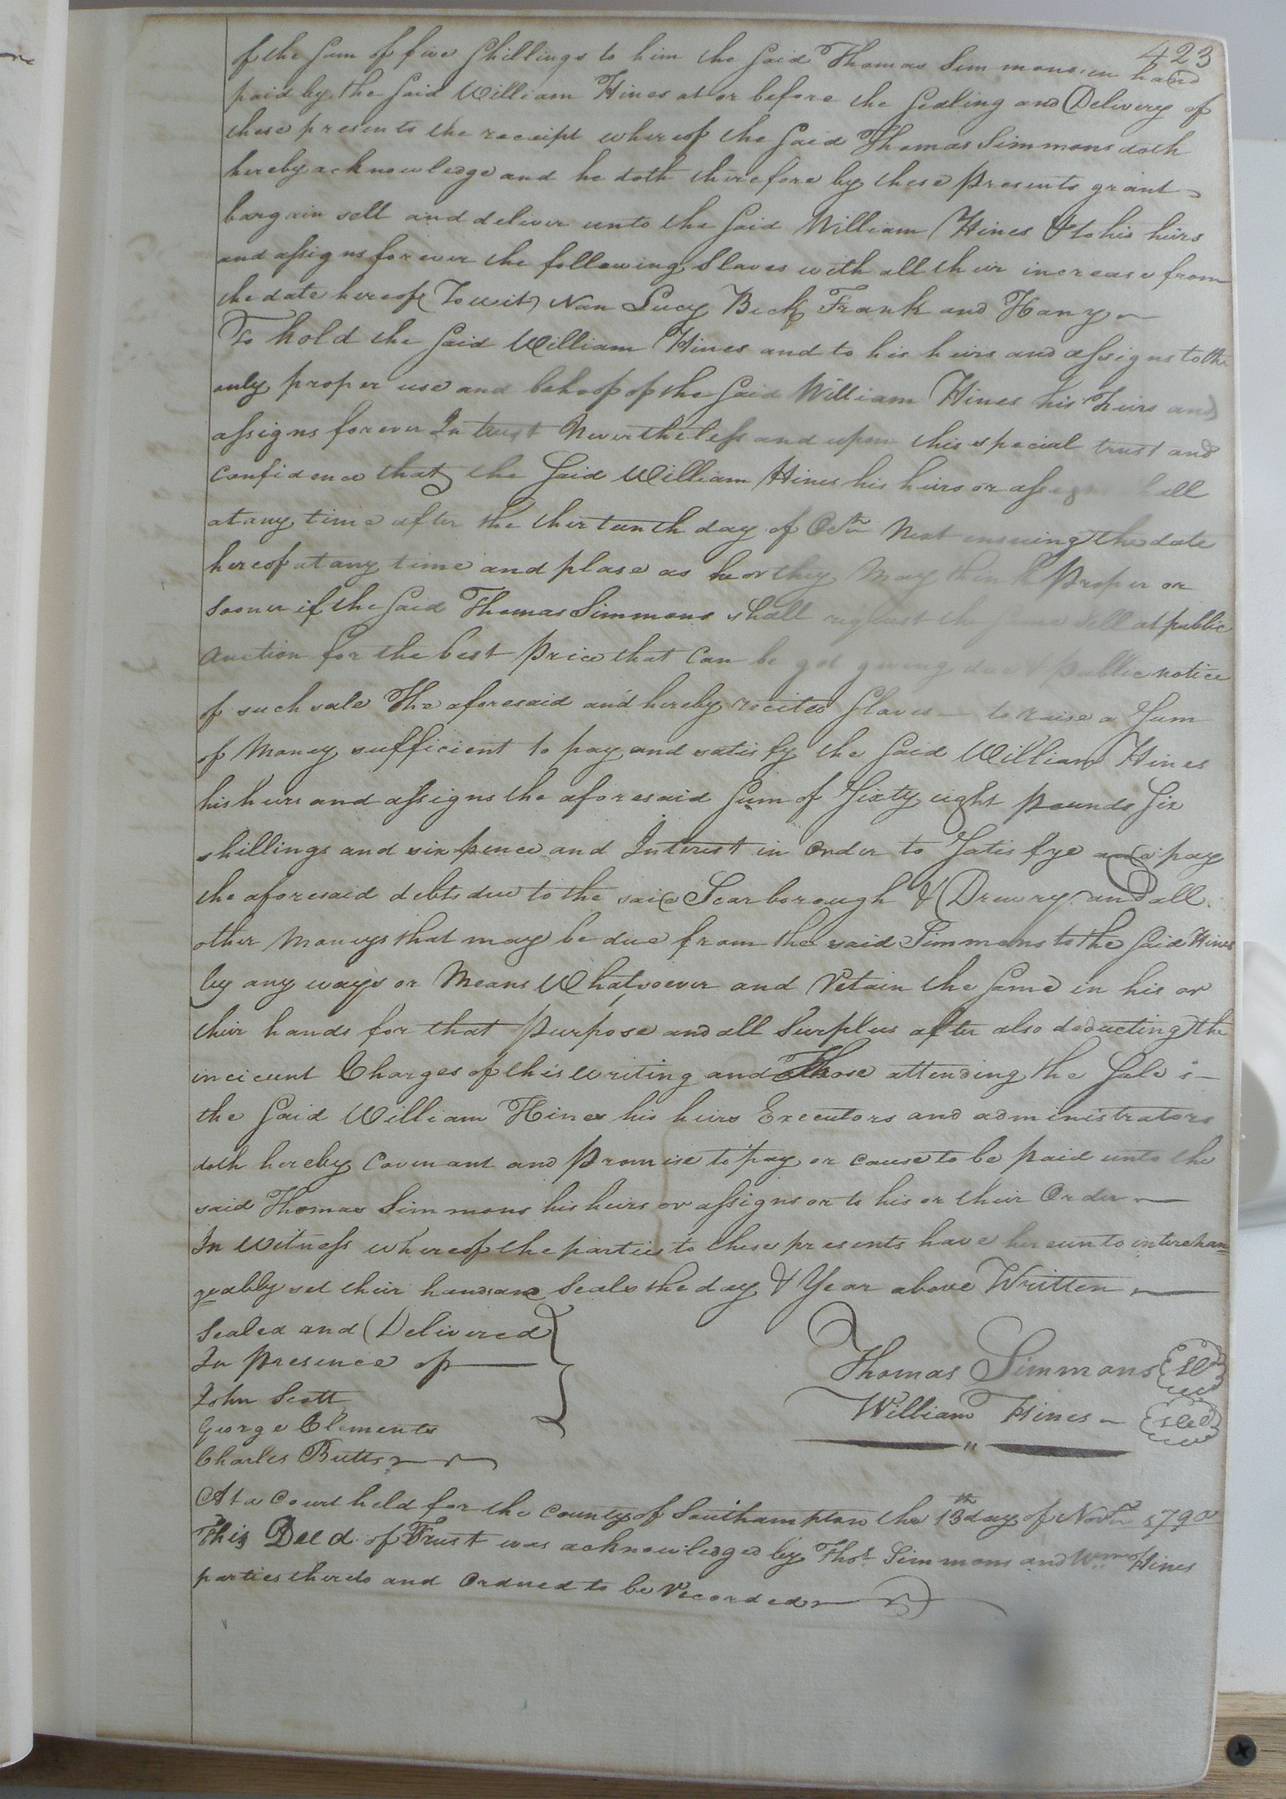 423
of the Sum of five Shillings to him the Said Thomas Simmons in hand
paid by the Said William Hines at or before the Sealing and Delivery of
these presents the receipt whereof the Said Thomas Simmons doth
hereby acknowledge and he doth therefore by these Presents grant
bargain sell and deliver unto the Said William Hines & to his heirs
and assigns forever the following Slaves with all their increase from
the date hereof (To wit) Nan Lucy Beck Frank and Hany
To hold the Said William Hines and to his heirs and assigns to the
only proper use and behoof of the Said William Hines his heirs and
assigns forever In trust Nevertheless and upon this special trust and
confidence that the Said William Hines his heirs or assigns shall
at any time after the thirteenth day of Octr Next ensuing the date
hereof at any time and place as he or they May think Proper or
Sooner if the Said Thomas Simmons shall request the same sell at public
Auction for the best Price that Can be got giving due & public notice
of such sale The aforesaid and hereby recited Slaves to raise a Sum
of Money sufficient to pay and satisfy the Said William Hines
his heirs and assigns the aforesaid Sum of Sixty eight Pounds Six
shillings and six pence and Interest in Order to Satisfye and pay
the aforesaid debts due to the said Scarborough & Drewry and all
other Moneys that may be due from the said Simmons to the Said Hines
by any ways or Means Whatsoever and Retain the Same in his or
their hands for that Purpose and all Surplus after also deducting the
incicent Charges of this writing and Those attending the Sale
the Said William Hines his heirs Executors and administrators
doth hereby Covenant and Promise to pay or cause to be paid unto the
said Thomas Simmons his heirs or assigns or to his or their Order
In Witness whereof the parties to these presents have hereunto interchan=
geably set their hands and Seals the day & Year above Written
Sealed and Delivered
In Presence of
John Scott
George Clements
Charles Butts
Thomas Simmons
William Hines
At a Court held for the County of Southampton the 13th day of Novr 1790
This Deed of Trust was acknowledged by Thos. Simmons and Wm. Hines
parties thereto and Ordned to be Recorded